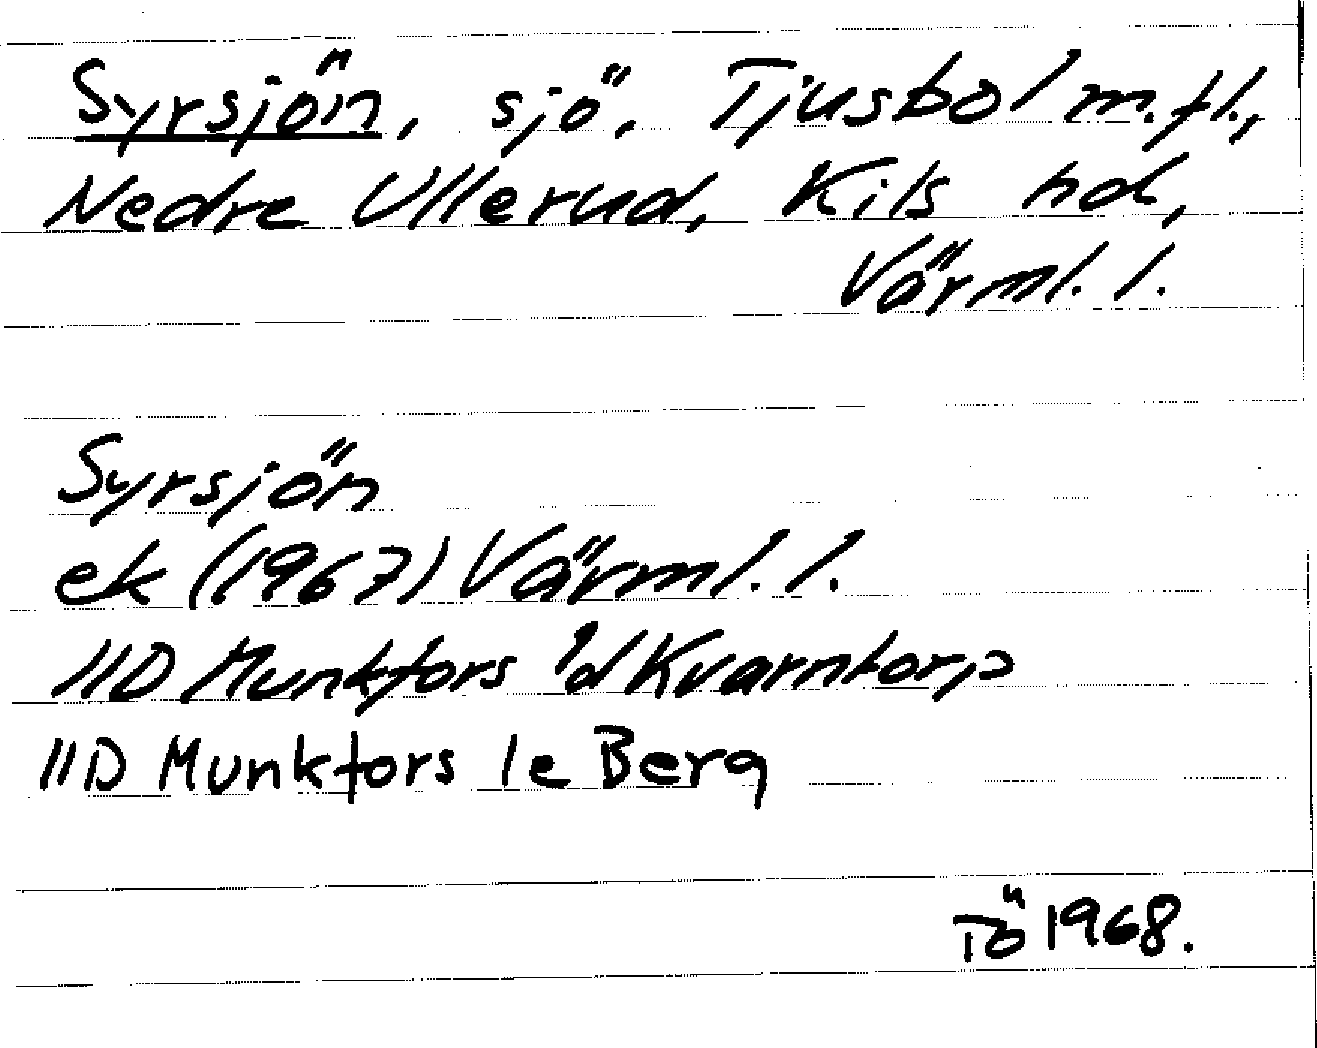 Syrsjön, sjö, Tjusbol m.fl.,
Nedre Ullerud, Kils hd,
Värml. l.
Syrsjön
ek (1967) Värml. l.
11D Munkfors 1d Kvarntorp
11D Munkfors 1e Berg
TÖ 1968.